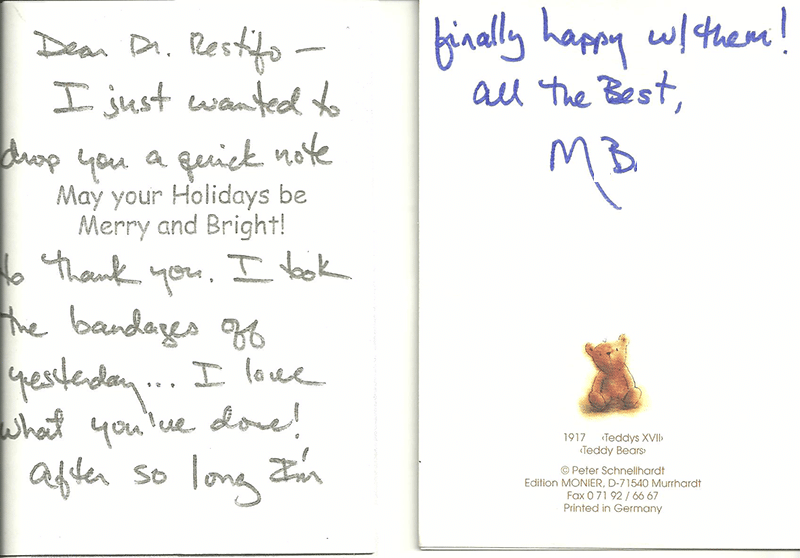 Dear Dr. Restifo —
I just wanted to
drop you a quick note
May your Holidays be
Merry and Bright!
to thank you. I took
the bandages off
yesterday... I love
what you've done!
After so long I'm
finally happy w/ them!
All the Best,
MB.
1917 ‹Teddys XVII›
‹Teddy Bears›
© Peter Schnellhardt
Edition MONIER, D-71540 Murrhardt
Fax 0 71 92 / 66 67
Printed in Germany